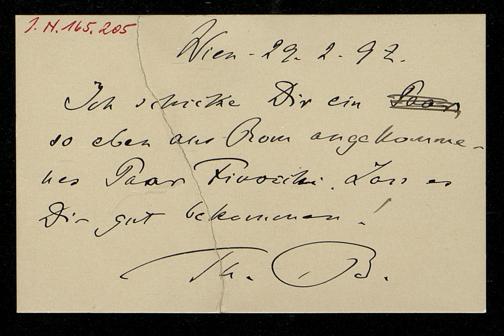 J. N. 165.205
Wien - 29. 2. 92.
Ich schicke Dir ein Paar
so eben aus Rom angekomme-
nes Paar Finocchi. Lass es
Dir gut bekommen!
Th. B.